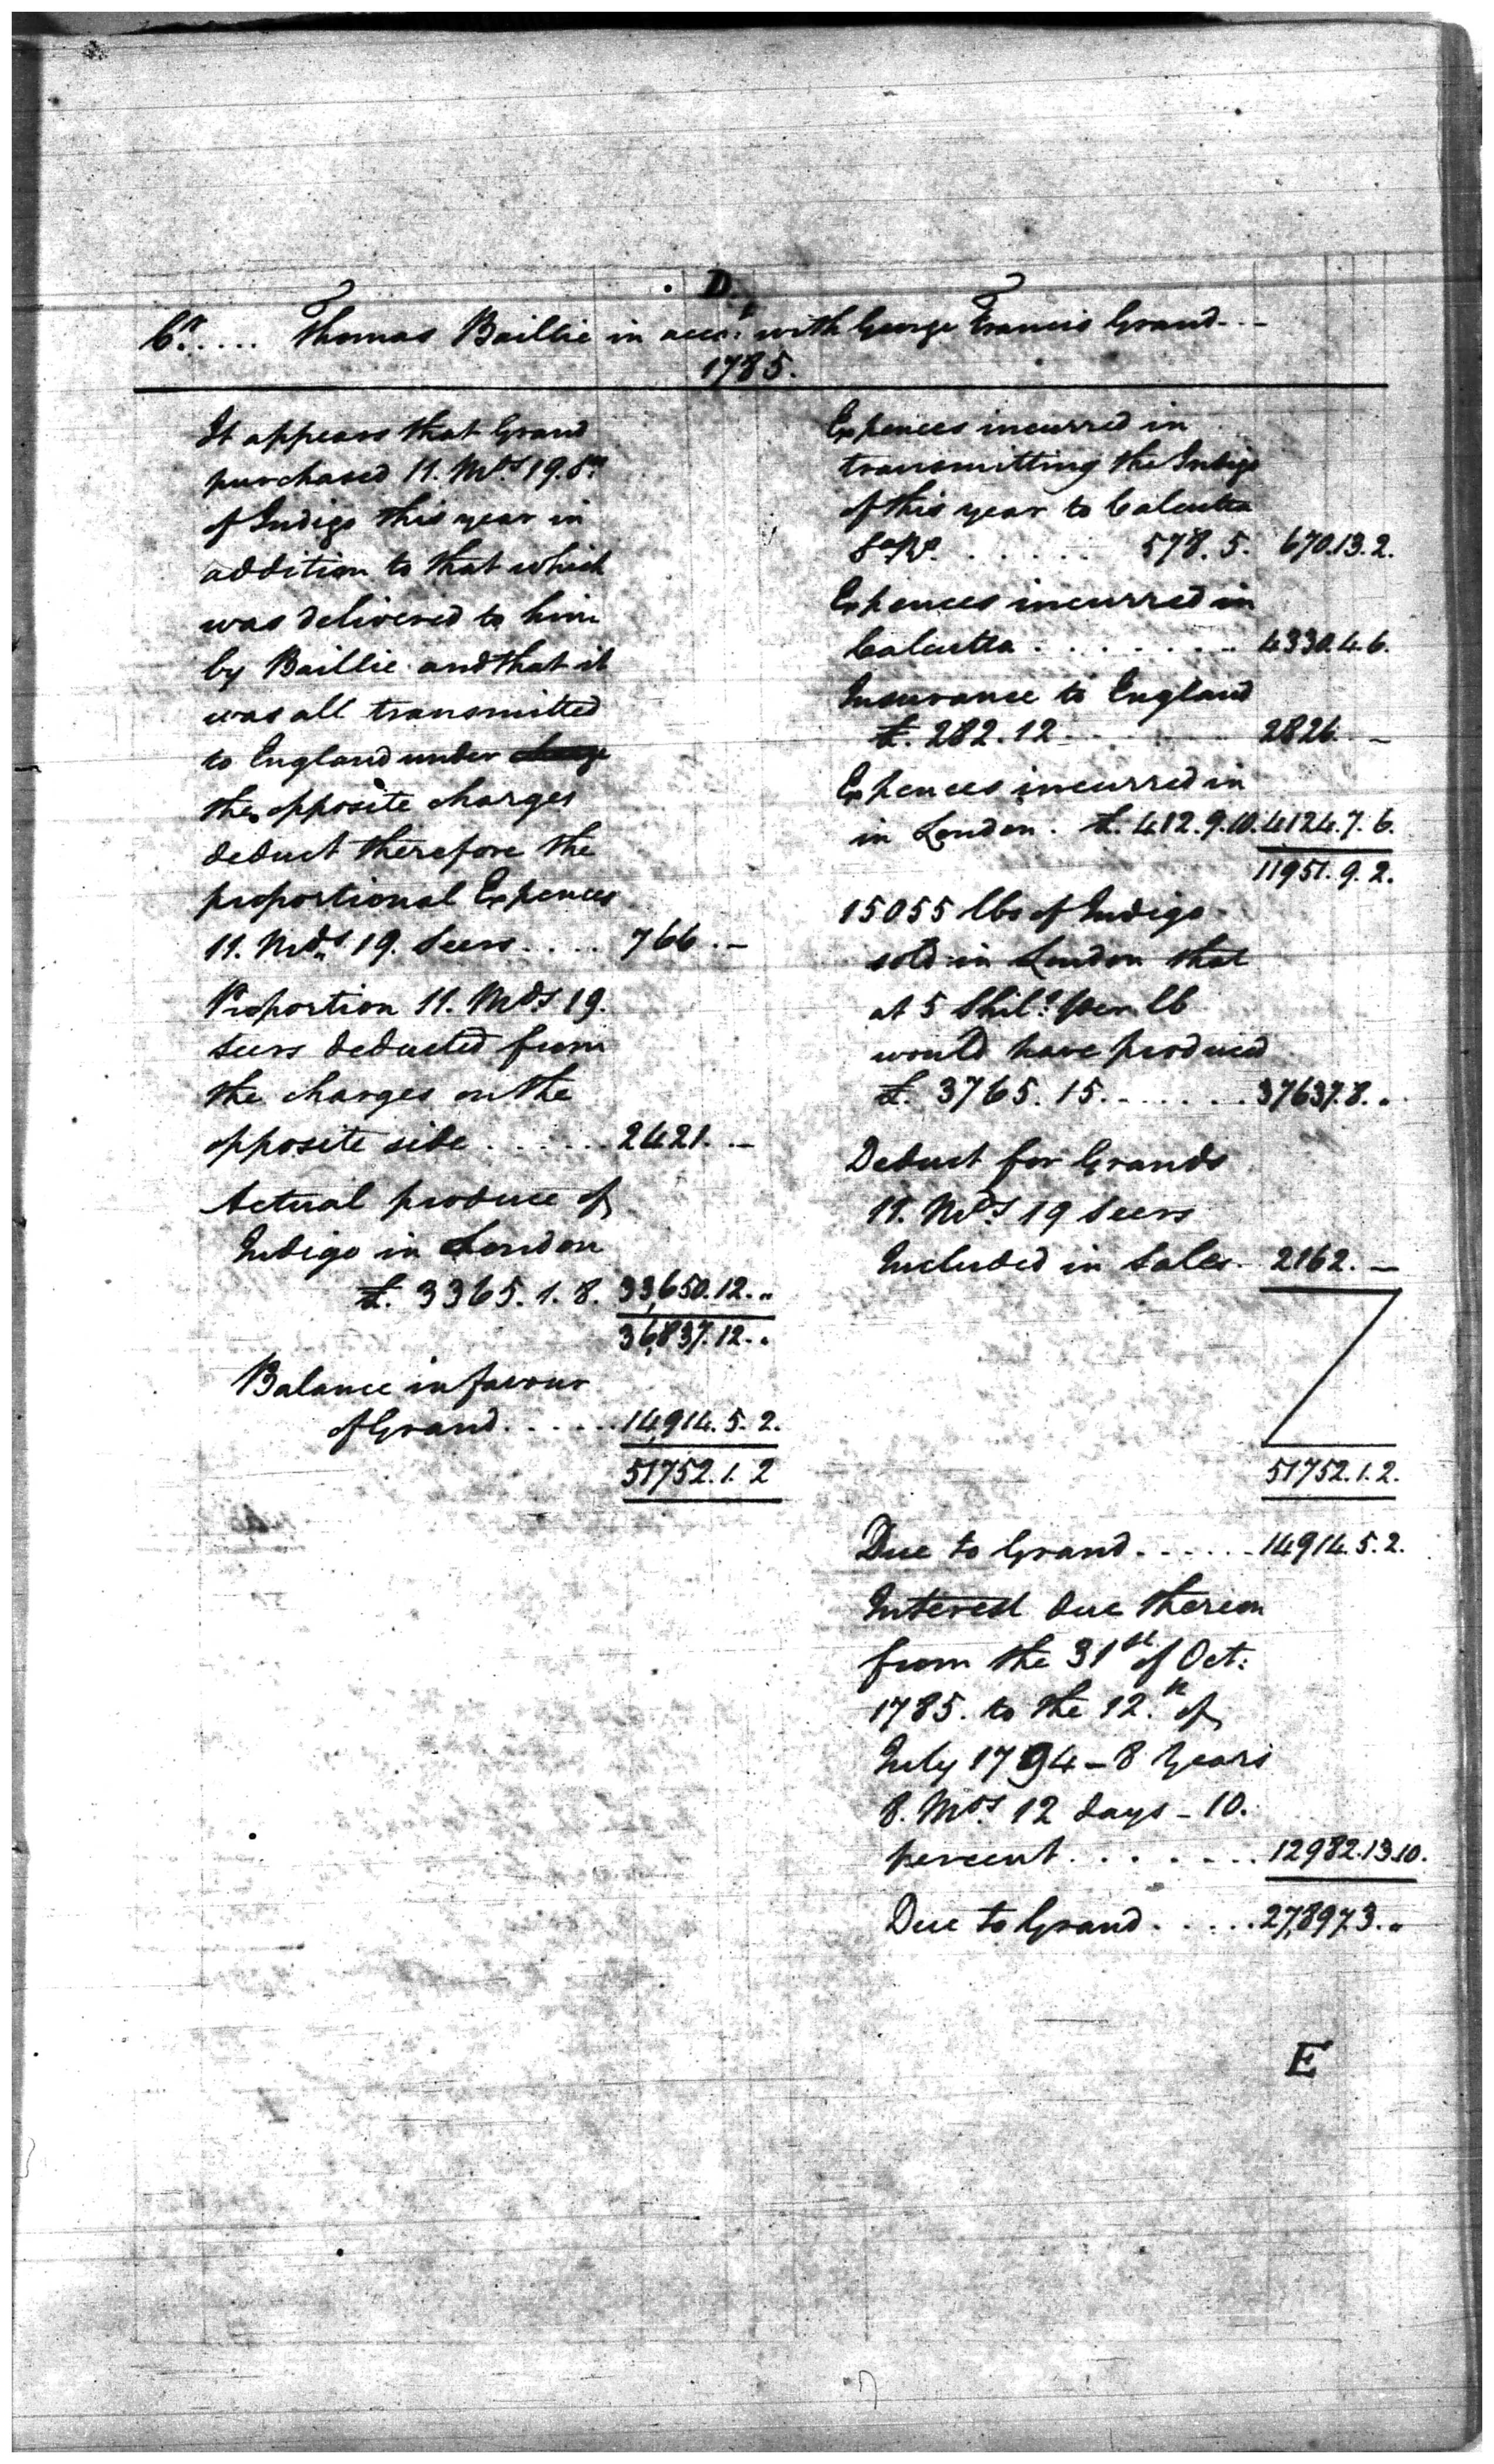 D.
Cr..... Thomas Baillie in acct: with George Francis Grand...
1785.
It appears that Grand
purchased 11. Mds 19. Sr
of Indigo this year in
addition to that which
was delivered to him
by Baillie and that it
was all transmitted
to England under
the opposite charges
deduct therefore the
proportional Expences
11. Mds. 19. Seers.... 766.-
Proportion 11. Mds 19.
Seers deducted from
the charges on the
opposite side...... 2421.-
Actual produce of
Indigo in London
£. 3365.1.8. 33,650.12.."
36,837.12.."
Balance in favour
of Grand..... 14,914.5.2.
51752.1.2
Expences incurred in
transmitting the Indigo
of this year to Calcutta
578.5. 670.13.2.
Expences incurred in
Calcutta....... 4330.4.6.
Insurance to England
£. 282.12...... 2826.-
Expences incurred in
in London. £. 412.9.10. 4124.7.6.
11951.9.2.
15055 lbs of Indigo
sold in London that
at 5 Shils. per lb
would have produced
£. 3765.15....... 37637.8.."
Deduct for Grands
11. Mds 19 Seers
Included in Sales. 2162.-
51,752.1.2.
Due to Grand...... 14914.5.2.
Interest due thereon
from the 31st of Oct:
1785. to the 12.th of
July 1794 - 8 Years
8. Mos. 12 days - 10.
percent....... 12982.13.10.
Due to Grand..... 27,897.3.."
E